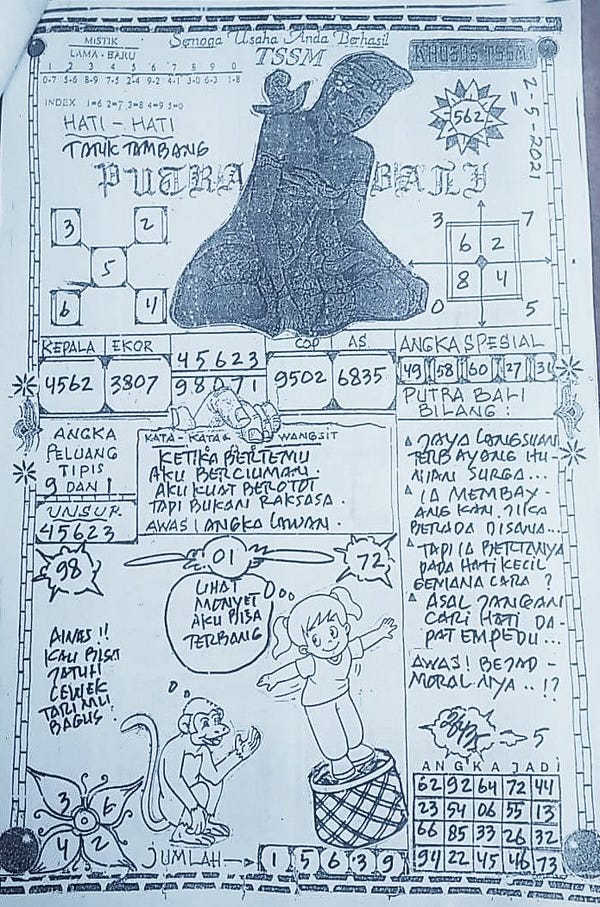 MISTIK
LAMA - BARU
1 2 3 4 5 6 7 8 9 0
0-7 5-6 8-9 7-5 2-4 9-2 4-1 3-0 6-3 1-8
INDEX 1=6 2=7 3=8 4=9 5=0
Semoga Usaha Anda Berhasil
TSSM
KHUSUS TSSM
562
2-5-2021
HATI - HATI
TARIK TAMBANG
PUTRA BALI
3 2
5
6 4
3 7
6 2
8 4
0 5
KEPALA EKOR
4562 3807
45623
98071
COP AS
9502 6835
ANGKA SPESIAL
49 58 60 27 31
PUTRA BALI
BILANG :
ANGKA
PELUANG
TIPIS
9 DAN 1
UNSUR
45623
KATA - KATA WANGSIT
KETIKA BERTEMU
AKU BERCIUMAN.
AKU KUAT BEROTOT
TAPI BUKAN RAKSASA.
AWAS! ANGKA LAWAN.
JAYA LANGSUAN
TERBAYANG HU-
NIAN SURGA...
IA MEMBAY-
ANGKAN JIKA
BERADA DISANA...
TAPI IA BERTANYA
PADA HATI KECIL
GEMANA CARA ?
ASAL JANGAN
CARI HATI DA-
PAT EMPEDU...
AWAS! BEJAD-
MORALNYA..!?
98
01
72
LIHAT
MONYET
AKU BISA
TERBANG
AWAS!!
KAU BISA
JATUH
CEWEK
TARIMU
BAGUS.
5
ANGKA JADI
62 92 64 72 44
23 54 06 55 13
66 85 33 26 32
94 22 45 46 73
3 6
4 2
JUMLAH → 1 5 6 3 9